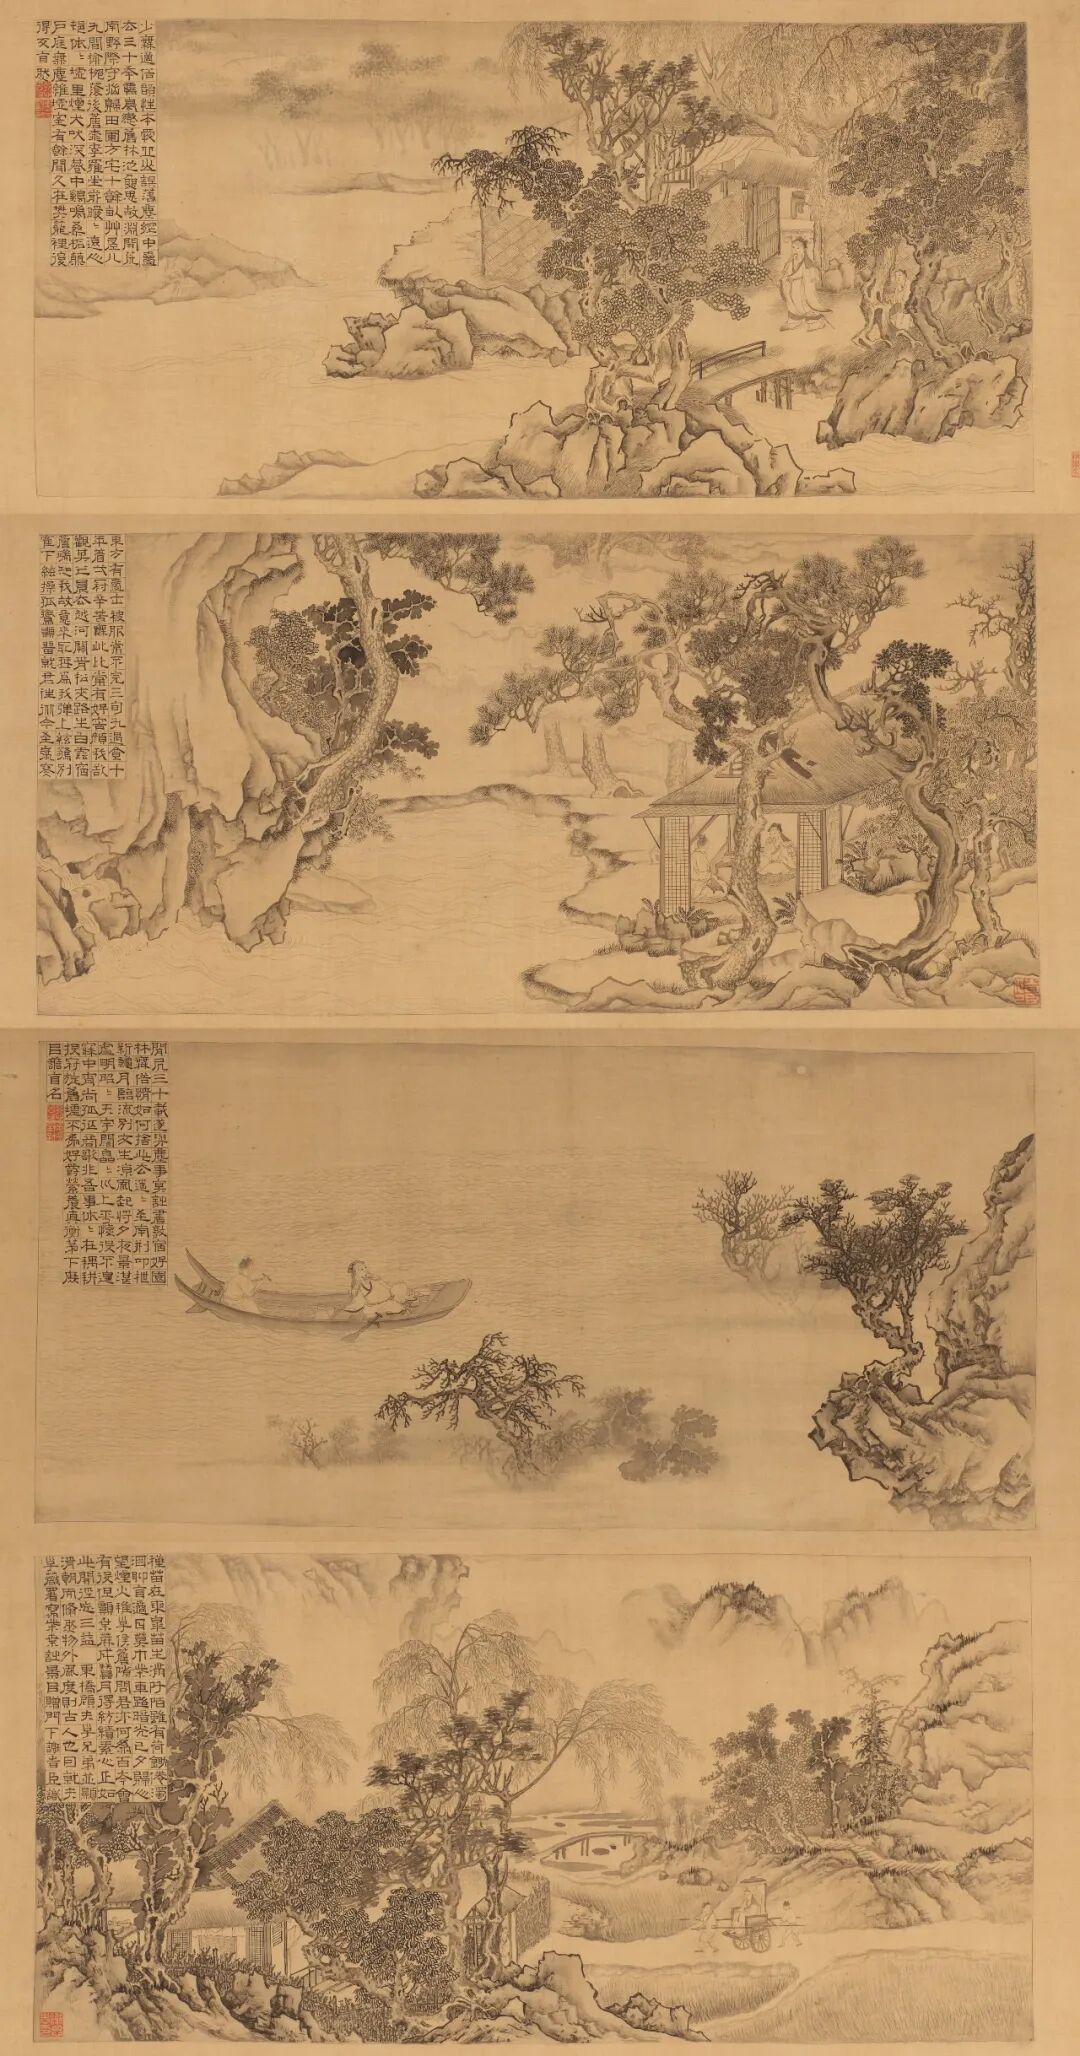 少無適俗韻性本愛丘山誤落塵網中壹
去三十年羈鳥戀舊林池魚思故淵開荒
南野際守拙歸田園方宅十餘畝艸屋八
九間榆柳蔭後簷桃李羅堂前曖〻遠人
村依〻墟里煙犬吠深巷中雞鳴桑樹巔
戶庭無塵雜虛室有餘閒久在樊籠裡復
得反自然
東方有壹士被服常不完三旬九遇食十
年著弌冠辛苦無此比常有好容顏我欲
觀其人晨去越河關青松夾路生白雲宿
簷端知我故意來取琴為我彈上絃驚別
寉下絃操孤鸞願留就君住從今至歲寒
閒居三十載遂與塵事冥詩書敦宿好園
林無俗情如何捨此去遙〻至南荊叩枻
新秋月臨流別友生涼風起將夕夜景湛
虛明昭〻天宇闊皛〻川上平懷役不遑
寐中宵尚孤征商歌非吾事依〻在耦耕
投冠旋舊墟不為好爵縈養真衡茅下庶
以善自名
種苗在東皋苗生滿阡陌雖有荷鋤倦濁
酒聊自適日暮巾柴車路暗光已夕歸人
望煙火稚子候簷隙問君亦何為百年會
有役但願桑麻成蠶月得紡績素心正如
此開徑望三益 東橋顧夫子兄弟並顯
清朝而脩然物外風度則古人也因就夫
寫柴桑詩景目贈門下